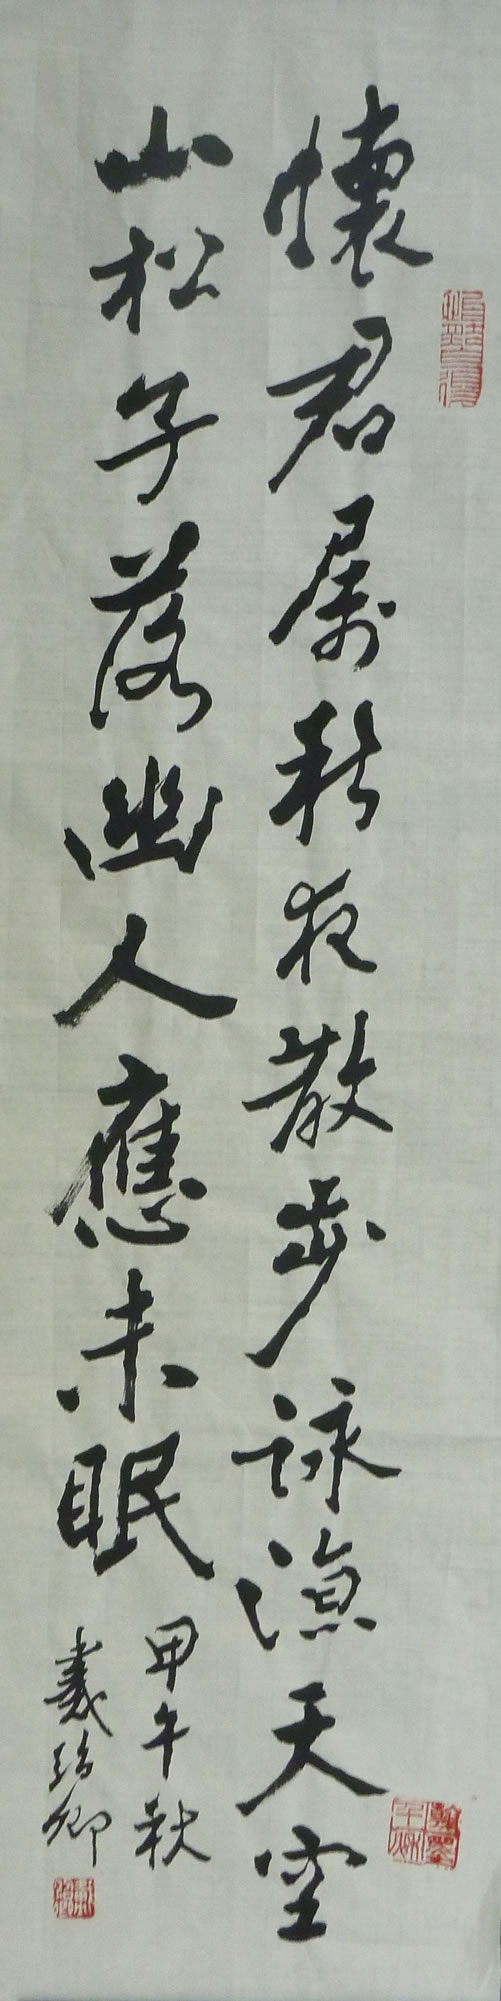 懷君屬秋夜散步詠涼天空
山松子落幽人應未眠
甲午秋